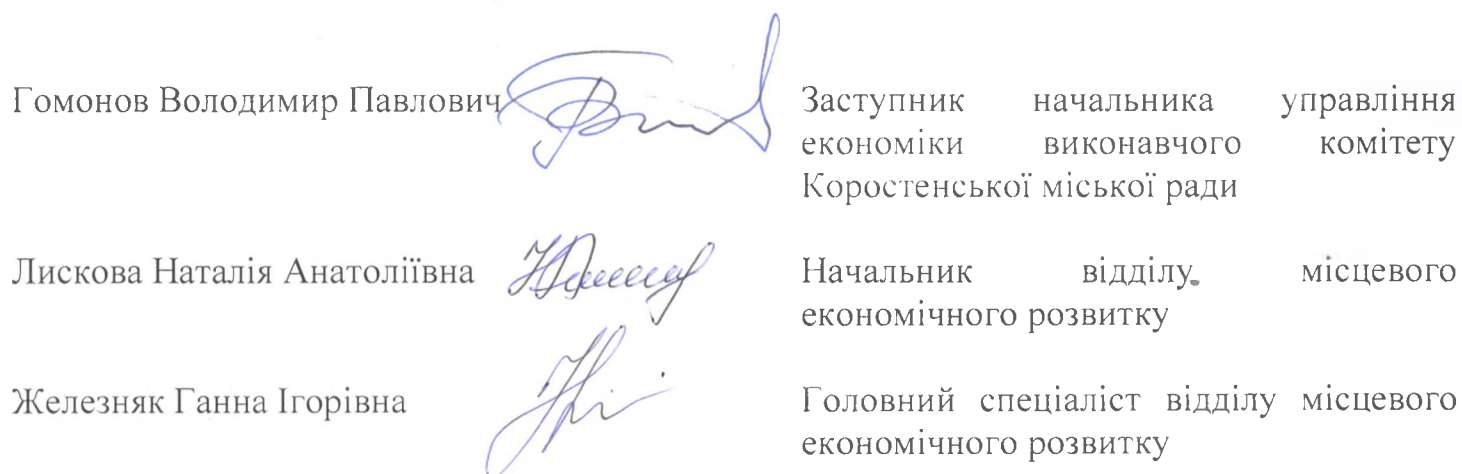 Гомонов Володимир Павлович Заступник начальника управління
економіки виконавчого комітету
Коростенської міської ради
Лискова Наталія Анатоліївна Начальник відділу місцевого
економічного розвитку
Железняк Ганна Ігорівна Головний спеціаліст відділу місцевого
економічного розвитку